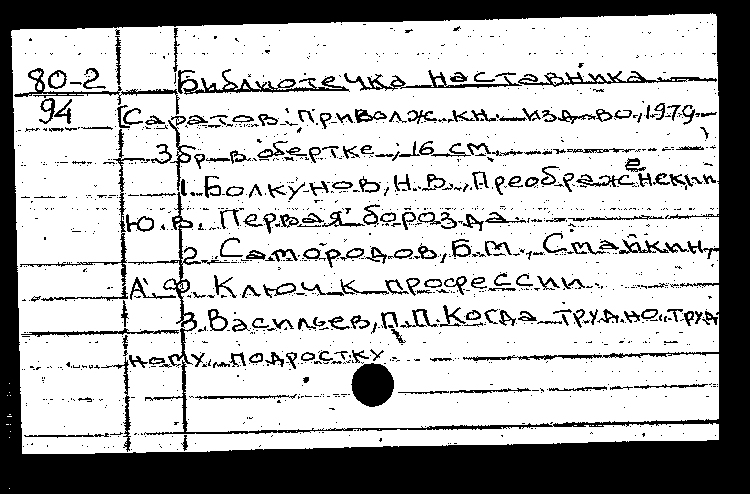 80-2 Библиотечка наставника.—
94 [Саратов: Приволж. кн. изд-во, 1979—
3 бр. в обертке; 16 см.
1. Болкунов, Н.В., Преображенский
Ю.В. Первая борозда.
2. Самородов, Б.М., Стайкин,
А.Ф. Ключ к профессии.
3. Васильев, П.П. Когда трудно труд
ному подростку.